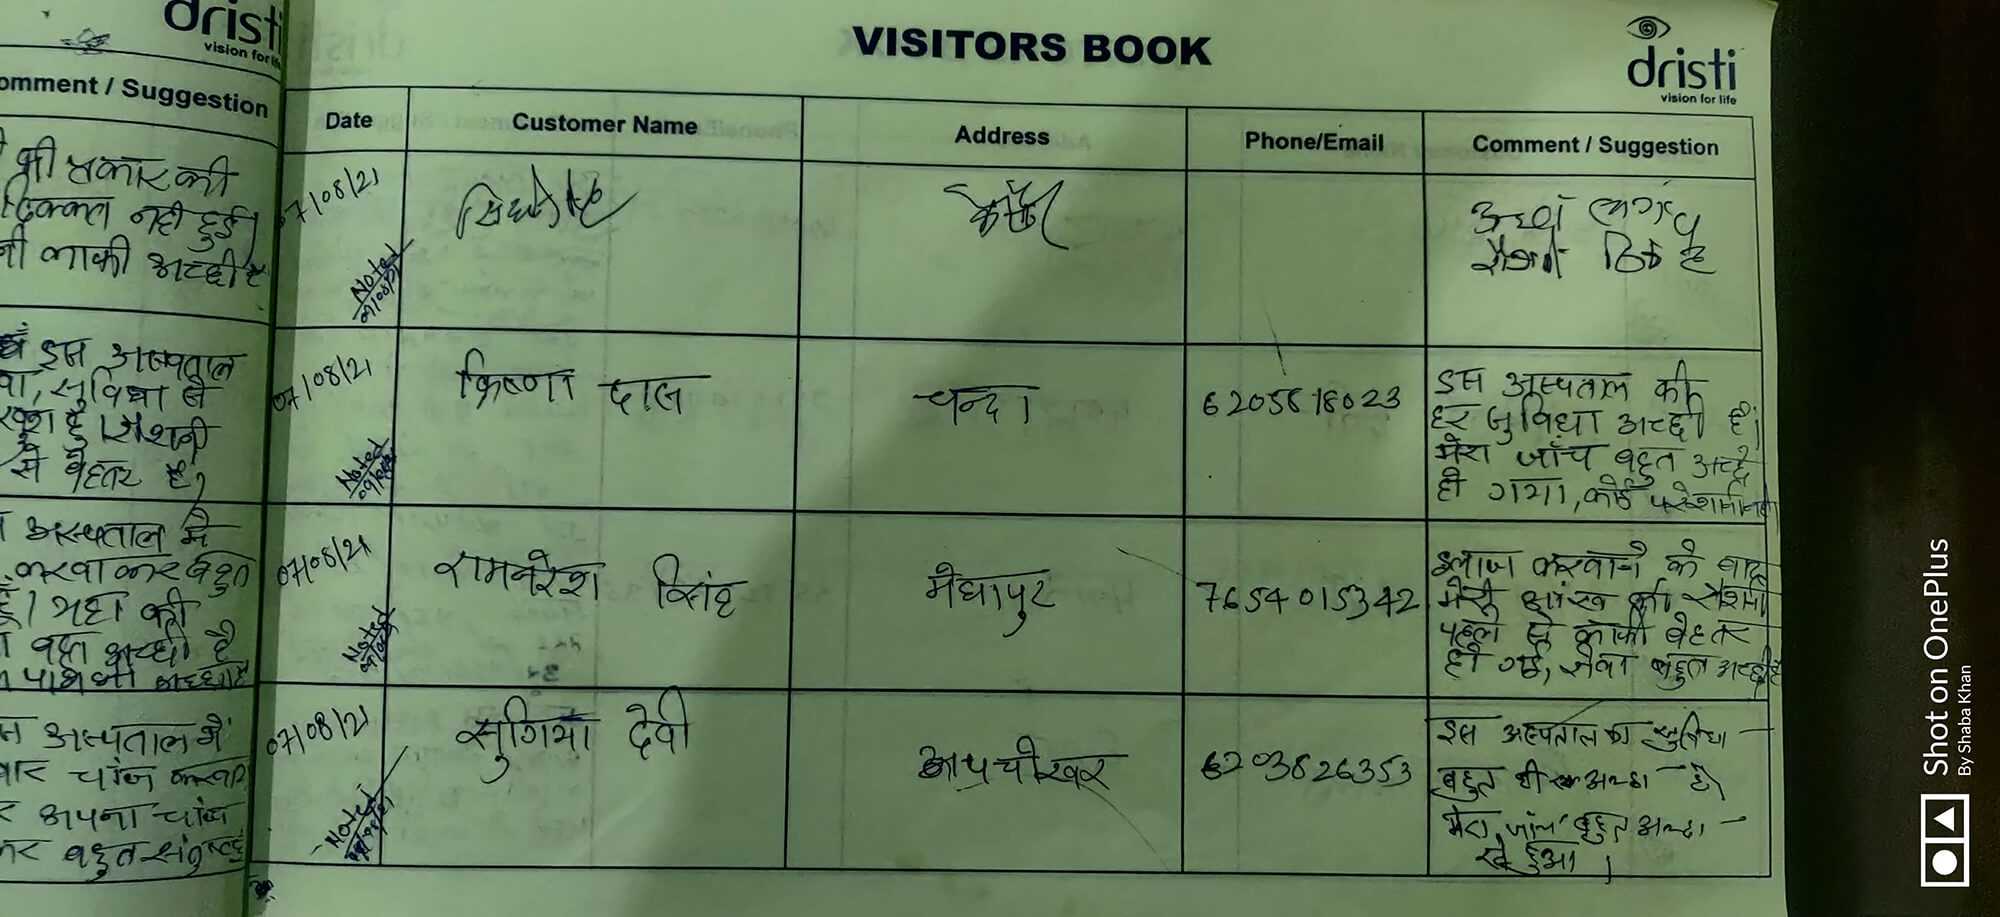 dristi
vision for life
Comment / Suggestion
की प्रकार की
दिक्कत नही हुई।
काफी अच्छी है
इस अस्पताल
सुविधा से
खुश हूँ। रौशनी
से बेहतर है,
अस्पताल मे
करवाकर बहुत
यहा की
बहुत अच्छी है
अस्पताल में
चांज करवा
अपना चांज
बहुत संतुष्ट हूँ
VISITORS BOOK
dristi
vision for life
Date
Customer Name
Address
Phone/Email
Comment / Suggestion
07/08/21
Noted
अच्छा लगा
ठिक है
07/08/21
क्रिष्णा दास
चन्दा
6205818023
Noted
इस अस्पताल की
हर सुविधा अच्छी है।
मेरा जाँच बहुत अच्छे
हो गया, कोई परेशानी नही
07/08/21
रामनरेश सिंह
मेघापुर
7654015342
Noted
इलाज करवाने के बाद
मेरी आंख की रोशनी
पहले से काफी बेहतर
हो गई, सेवा बहुत अच्छी है
07/08/21
सुगिया देवी
6203826353
Noted
इस अस्पताल का सुविधा
बहुत ही अच्छा है।
मेरा जांच बहुत अच्छा
से हुआ।
Shot on OnePlus
By Shaba Khan